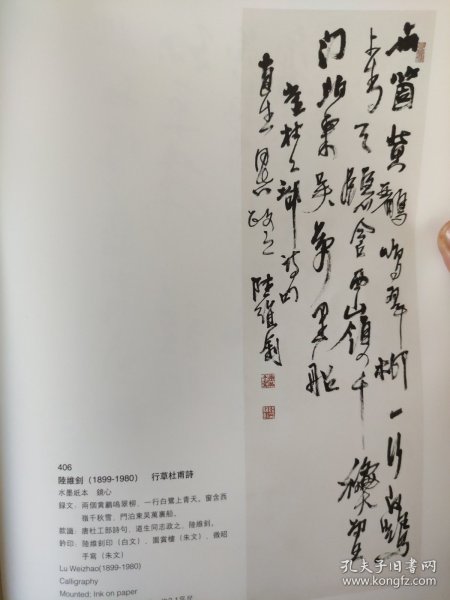 兩箇黄鸝鳴翠柳一行白鷺
上青天窗含西山嶺千秋雪
门泊東吴萬里船
唐杜工部诗句
道生同志政之 陸維釗
406
陸維釗（1899-1980） 行草杜甫詩
水墨紙本 鏡心
録文：兩個黄鸝鳴翠柳，一行白鷺上青天。窗含西
嶺千秋雪，門泊東吴萬裏船。
款識：唐杜工部詩句，道生同志政之，陸維釗。
鈐印：陸維釗印（白文）、圓賞樓（朱文）、微昭
手寫（朱文）
Lu Weizhao(1899-1980)
Calligraphy
Mounted: Ink on paper
孔夫子旧书网